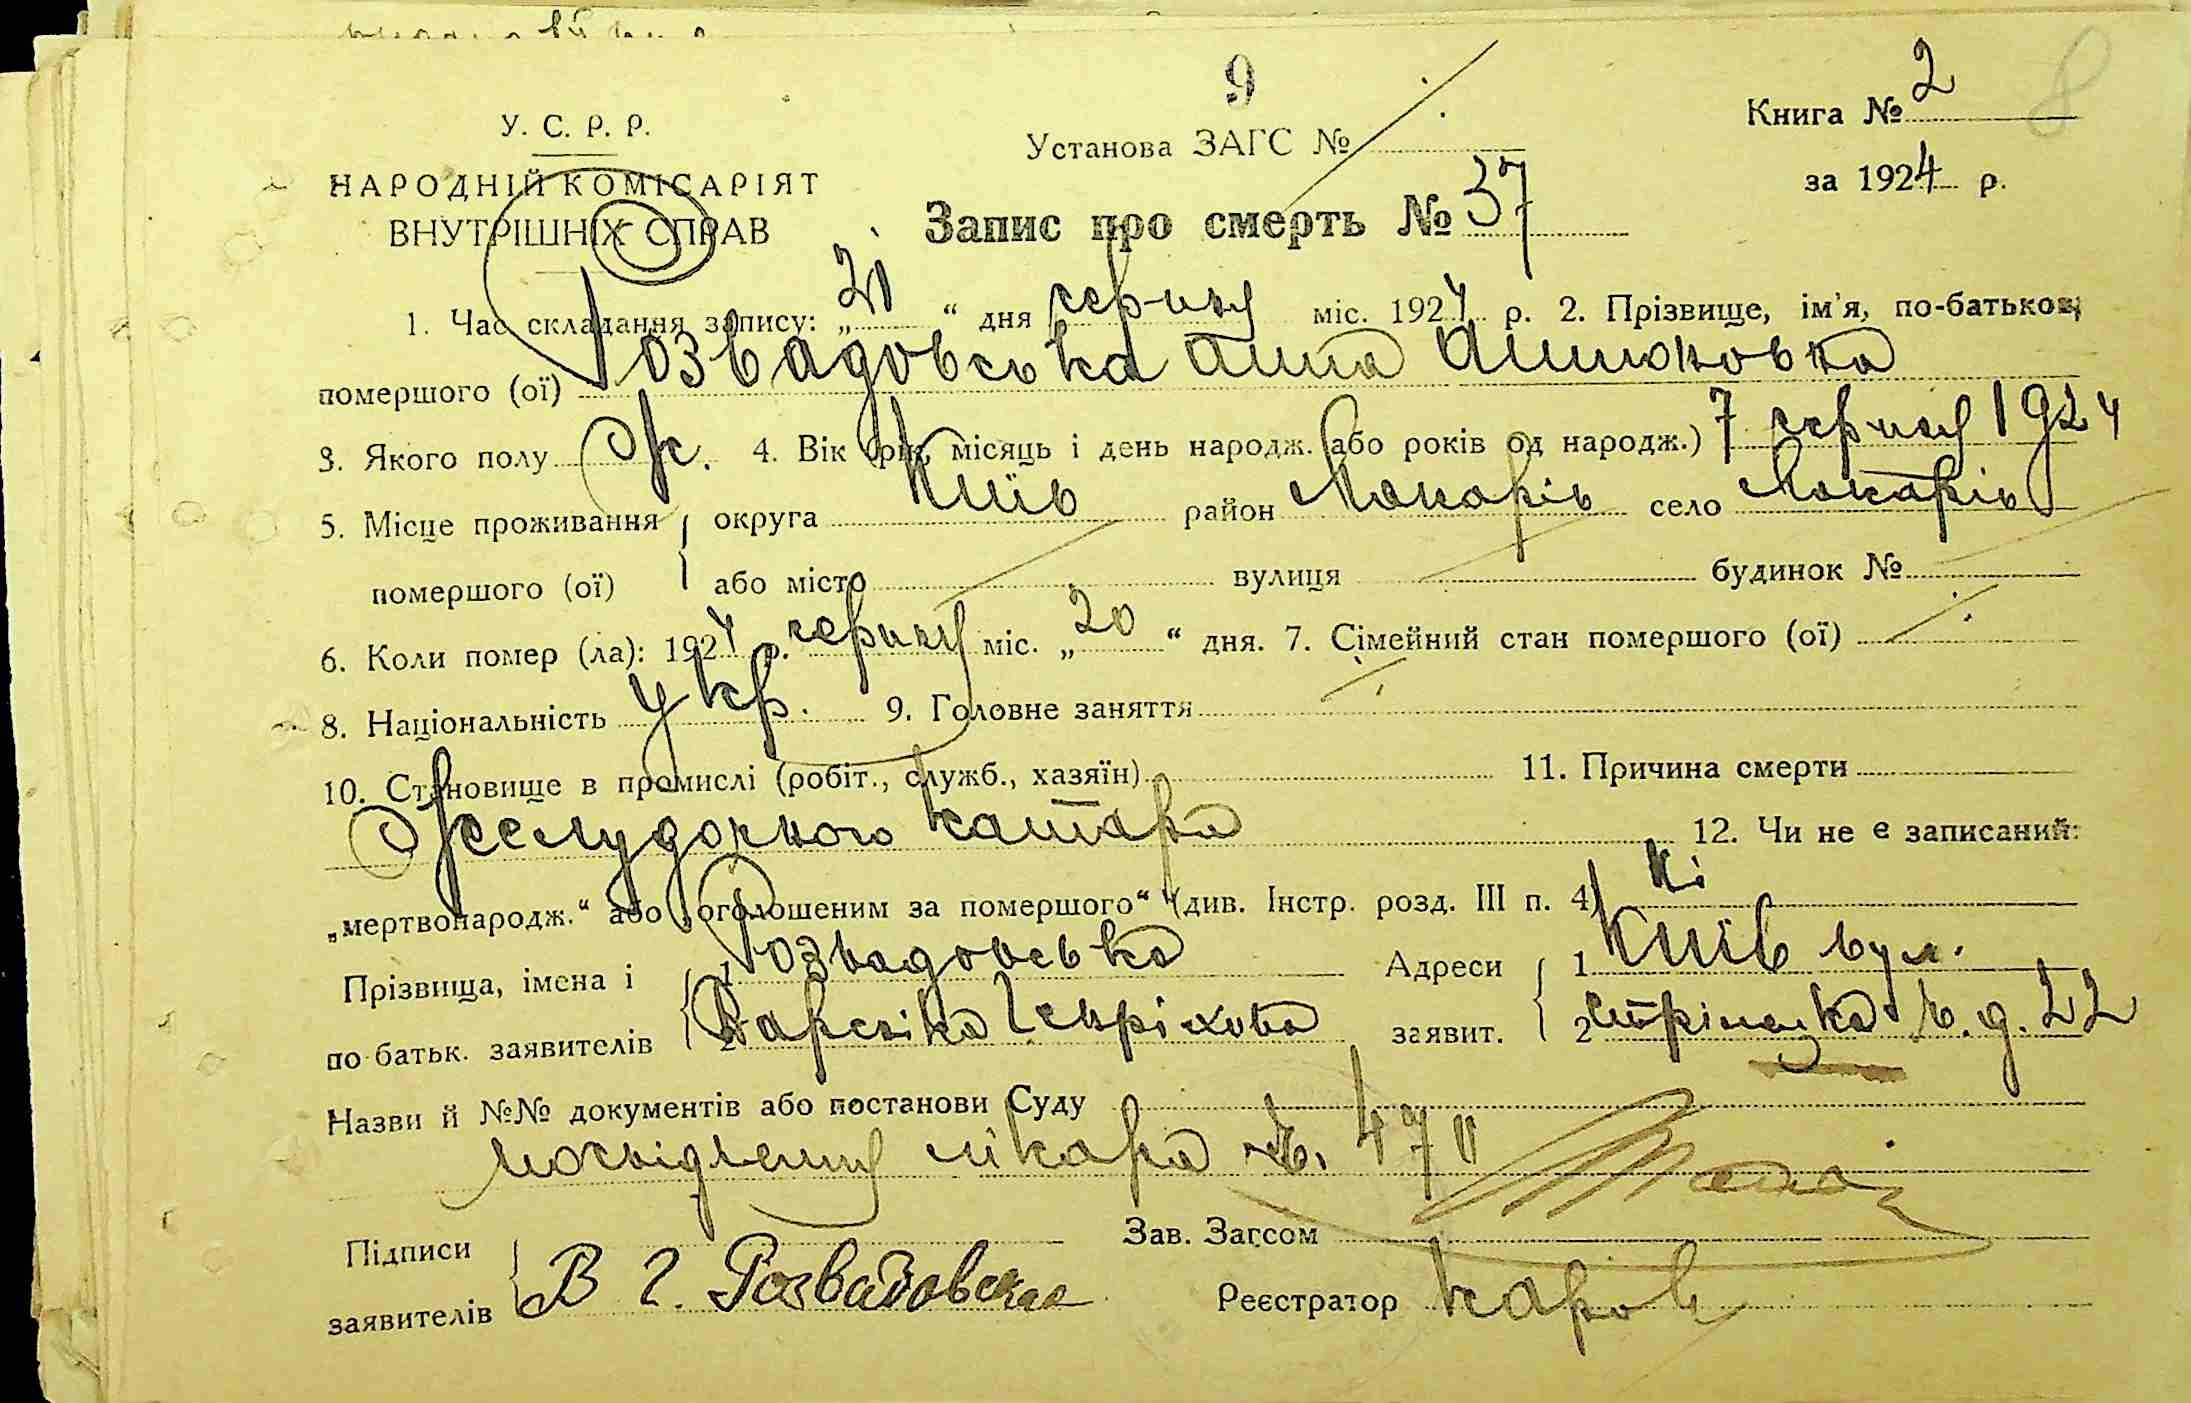 9
8
У. С. Р. Р.
НАРОДНІЙ КОМІСАРІЯТ
ВНУТРІШНІХ СПРАВ
Установа ЗАГС №
Книга № 2
за 1924 р.
Запис про смерть № 37
1. Час складання запису: „21“ дня серпня міс. 1924 р. 2. Прізвище, ім'я, по-батькові
помершого (ої) Розвадовська Анна
3. Якого полу ж. 4. Вік (рік, місяць і день народж. або років од народж.) 7 серпня 1924
5. Місце проживання округа Київ район Макарів село Макарів
помершого (ої) або місто вулиця будинок №
6. Коли помер (ла): 1924 р. серпня міс. „20“ дня. 7. Сімейний стан помершого (ої)
8. Національність укр. 9. Головне заняття
10. Становище в промислі (робіт., служб., хазяїн) 11. Причина смерти
Желудочного катара 12. Чи не є записаний:
„мертвонародж.“ або „оголошеним за помершого“ (див. Інстр. розд. III п. 4) ні
Прізвища, імена і 1 Розвадовська Адреси 1 Київ вул.
по-батьк. заявителів 2 Генріховна заявит. 2 д. 22
Назви й №№ документів або постанови Суду
посвідчення лікаря № 470
Підписи Зав. Загсом
заявителів В Г. Розвадовская Реєстратор